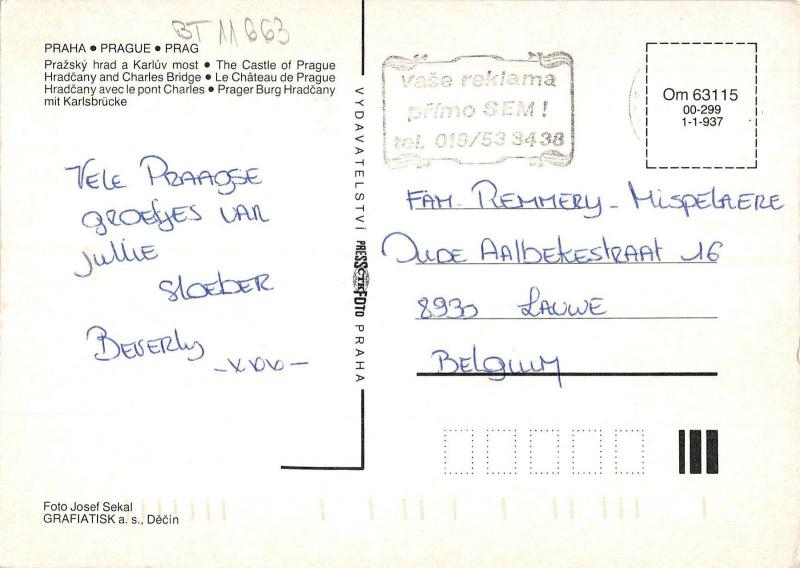 BT M 663
PRAHA • PRAGUE • PRAG
Pražský hrad a Karlův most • The Castle of Prague
Hradčany and Charles Bridge • Le Château de Prague
Hradčany avec le pont Charles • Prager Burg Hradčany
mit Karlsbrücke
VELE PRAAGSE
GROETJES VAN
JULLIE
SLOEBER
BEVERLY
-xxx-
VYDAVATELSTVÍ PRESSFOTO PRAHA
ČTK
Vaše reklama
přímo SEM !
tel. 019/53 3438
Om 63115
00-299
1-1-937
FAM. REMMERY - MISPELAERE
OUDE AALBEKESTRAAT 16
8930 LAUWE
BELGIUM
Foto Josef Sekal
GRAFIATISK a. s., Děčín